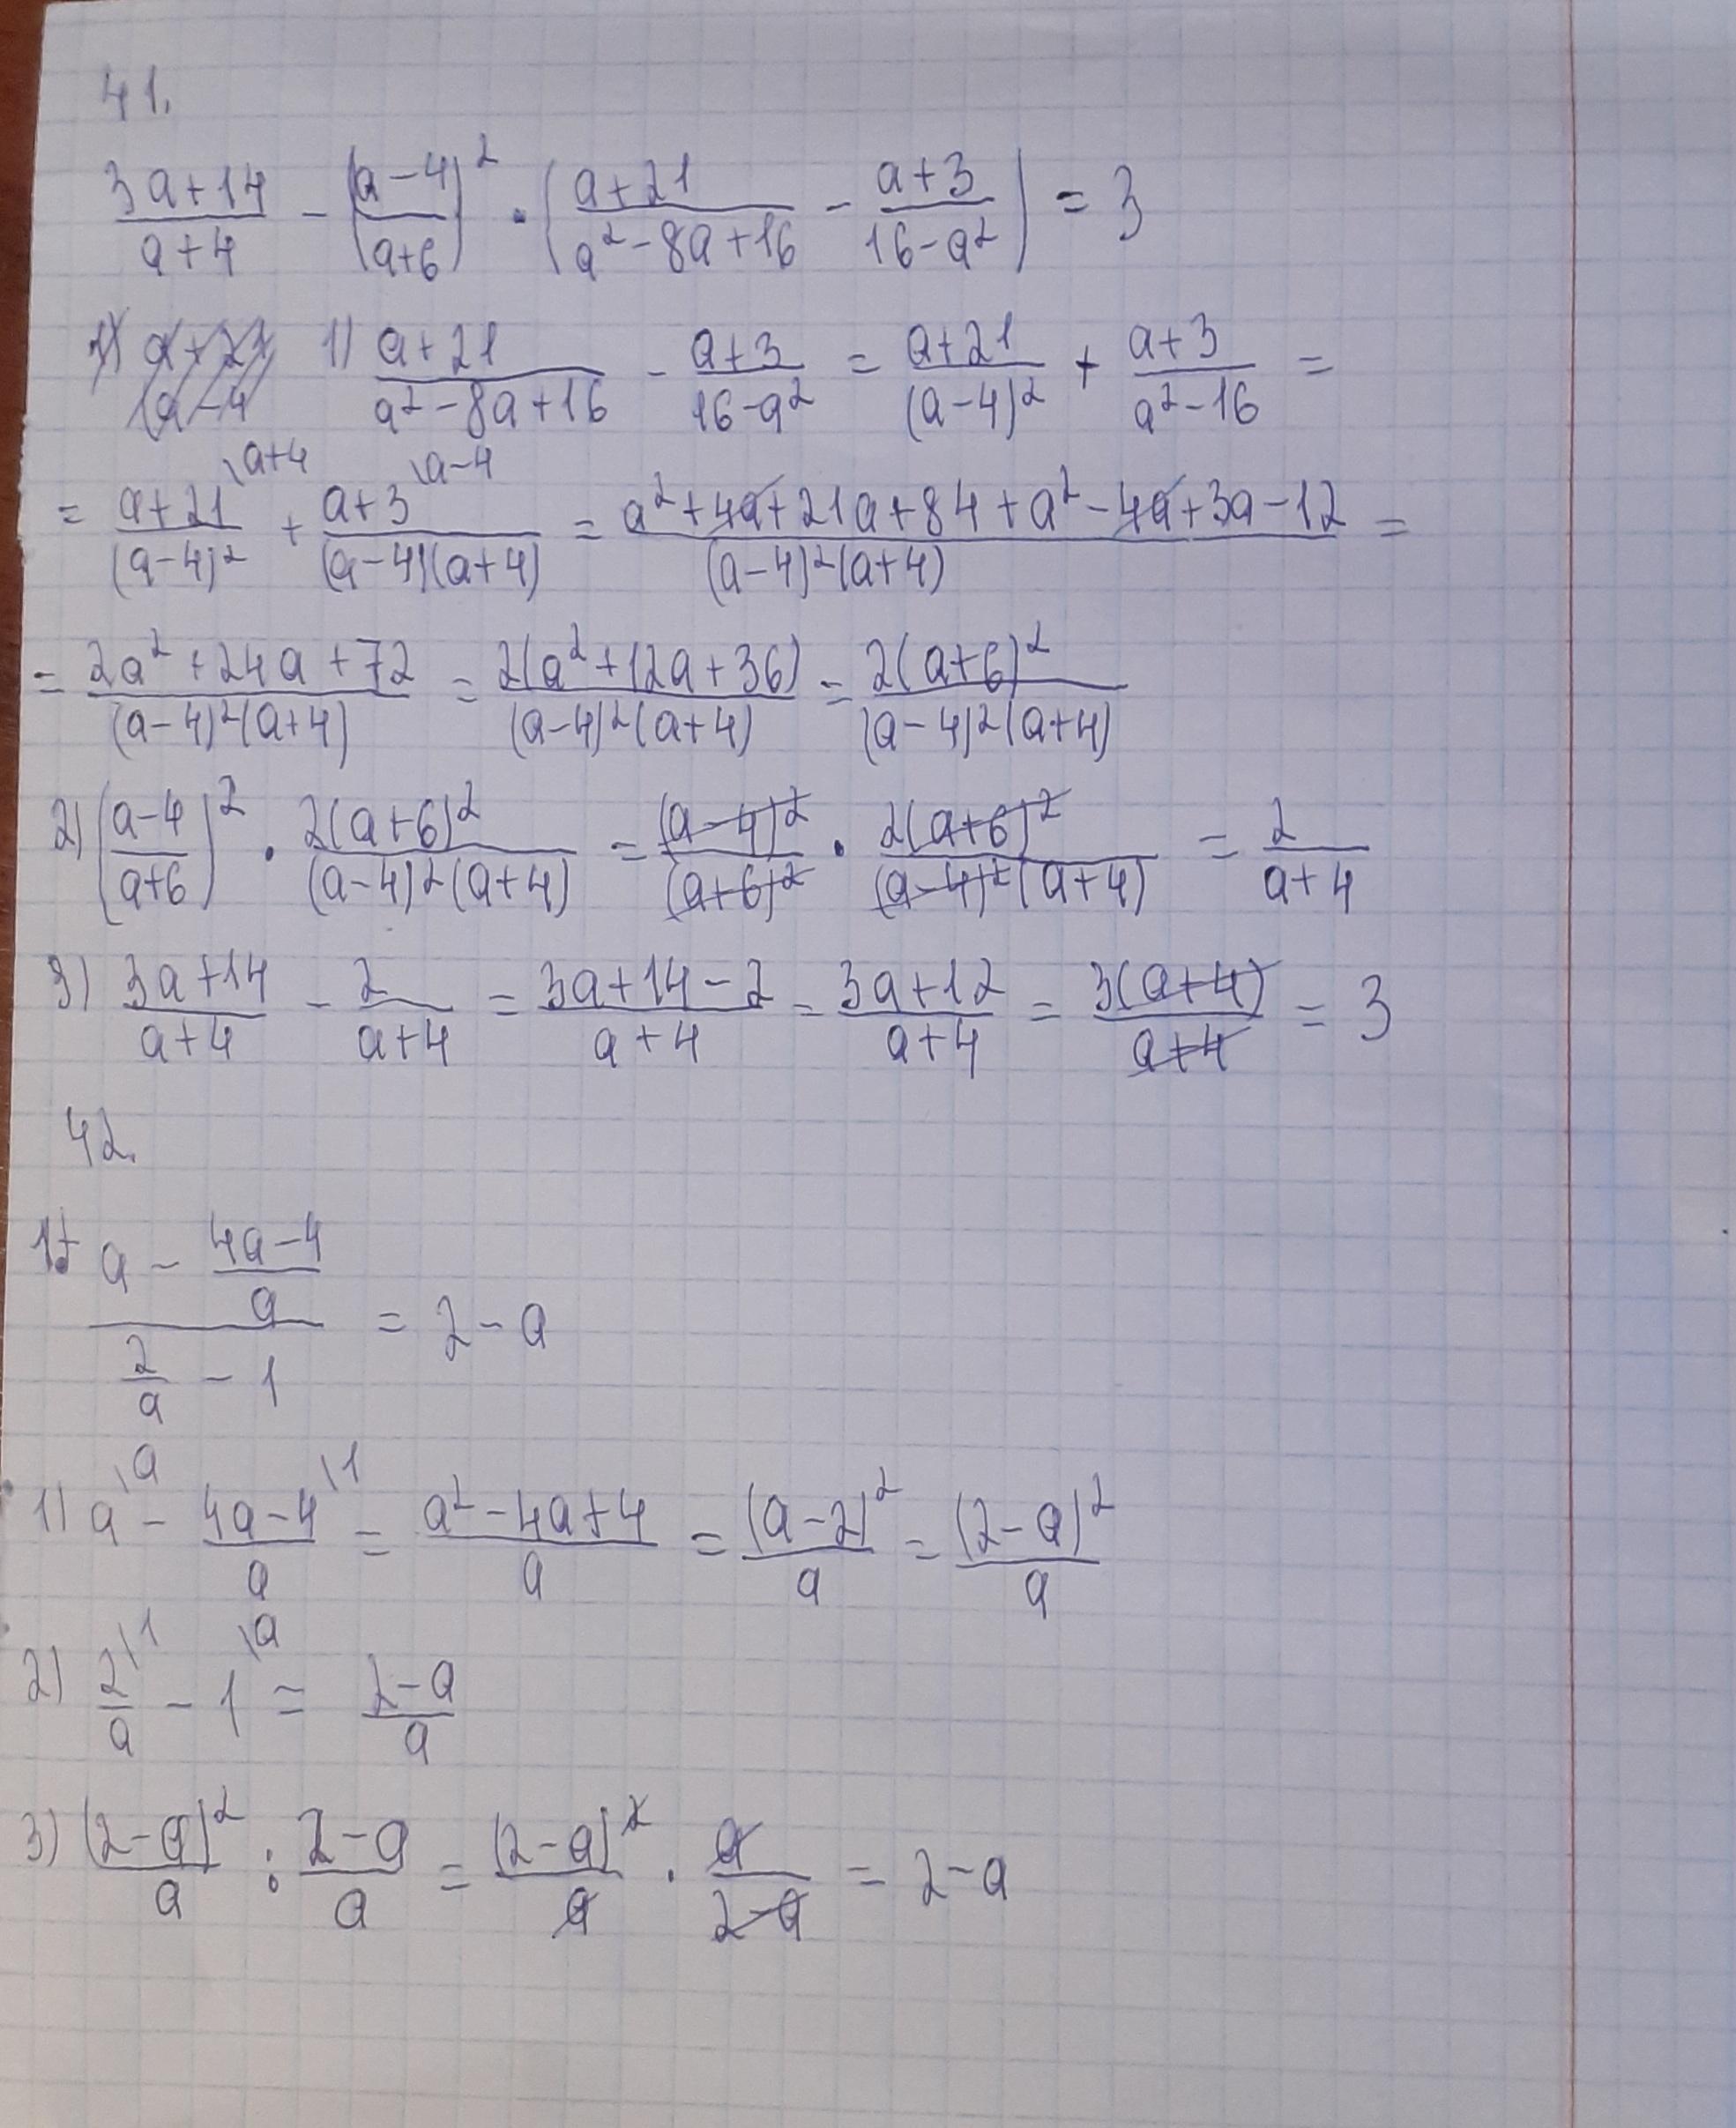 41.
(3a+14)/(a+4) - ((a-4)/(a+6))² · ((a+21)/(a²-8a+16) - (a+3)/(16-a²)) = 3
1) (a+21)/(a²-8a+16) - (a+3)/(16-a²) = (a+21)/(a-4)² + (a+3)/(a²-16) =
= (a+21)/(a-4)² \a+4 + (a+3)/((a-4)(a+4)) \a-4 = (a²+4a+21a+84+a²-4a+3a-12)/((a-4)²(a+4)) =
= (2a²+24a+72)/((a-4)²(a+4)) = 2(a²+12a+36)/((a-4)²(a+4)) = 2(a+6)²/((a-4)²(a+4))
2) ((a-4)/(a+6))² · 2(a+6)²/((a-4)²(a+4)) = (a-4)²/(a+6)² · 2(a+6)²/((a-4)²(a+4)) = 2/(a+4)
3) (3a+14)/(a+4) - 2/(a+4) = (3a+14-2)/(a+4) = (3a+12)/(a+4) = 3(a+4)/(a+4) = 3
42.
1) (a - (4a-4)/a)/(2/a - 1) = 2-a
1) a \a - (4a-4)/a \1 = (a²-4a+4)/a = (a-2)²/a = (2-a)²/a
2) 2/a \1 - 1 \a = (2-a)/a
3) (2-a)²/a : (2-a)/a = (2-a)²/a · a/(2-a) = 2-a